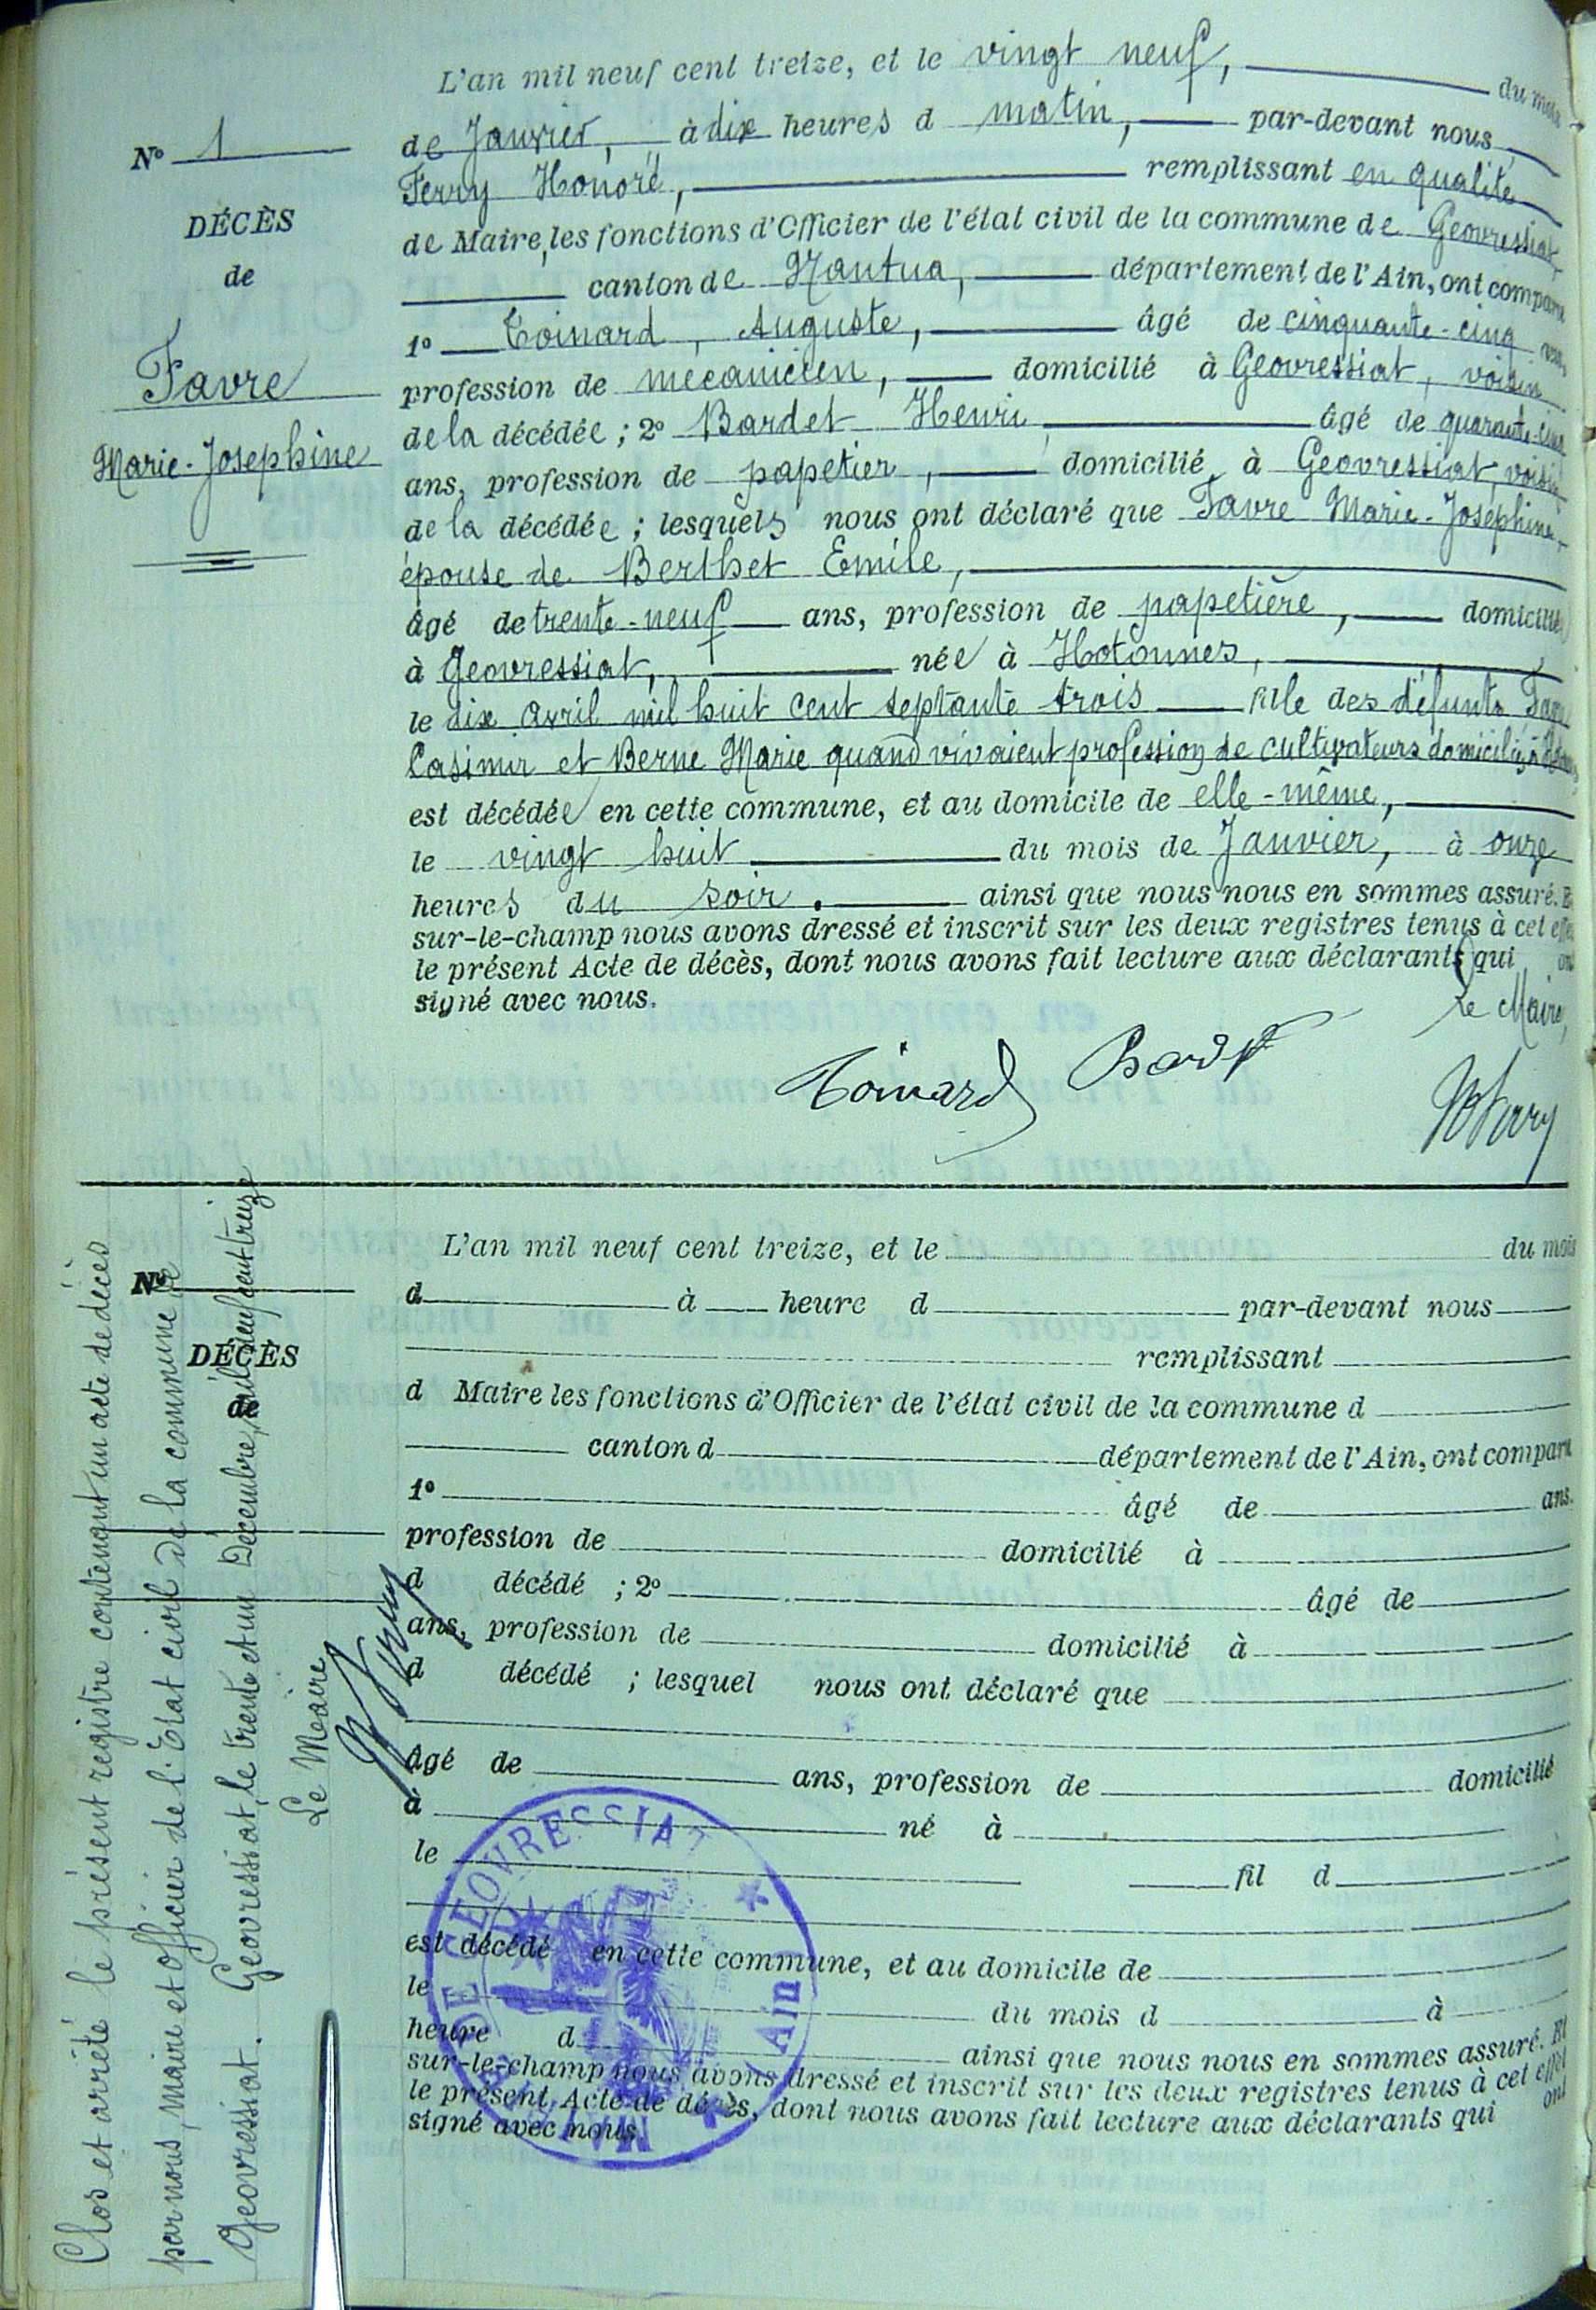 L'an mil neuf cent treize, et le vingt neuf, du mois
de Janvier, à dix heures d matin, par-devant nous
Ferry Honoré, remplissant en qualité
de Maire, les fonctions d'Officier de l'état civil de la commune de Geovressiat,
canton de Nantua, département de l'Ain, ont comparu
1º Toinard, Auguste, âgé de cinquante-cinq ans,
profession de mecanicien, domicilié à Geovressiat, voisin
de la décédée ; 2º Bardet Henri âgé de quarante-cinq
ans, profession de papetier, domicilié à Geovressiat, voisin
de la décédée ; lesquels nous ont déclaré que Favre Marie-Josephine,
épouse de Berthet Emile,
âgé de trente-neuf ans, profession de papetière, domiciliée
à Geovressiat, née à Hotonnes,
le dix avril mil huit cent septante trois fille des défunts Favre
Casimir et Berne Marie quand vivaient profession de cultivateurs domiciliés à
est décédée en cette commune, et au domicile de elle-même,
le vingt huit du mois de Janvier, à onze
heures du soir. ainsi que nous nous en sommes assuré. Et
sur-le-champ nous avons dressé et inscrit sur les deux registres tenus à cet effet
le présent Acte de décès, dont nous avons fait lecture aux déclarants qui ont
signé avec nous.
Le Maire,
Toinard Bardet HFerry
Nº 1
DÉCÈS
de
Favre
Marie-Josephine
L'an mil neuf cent treize, et le du mois
d à heure d par-devant nous
remplissant
d Maire les fonctions d'Officier de l'état civil de la commune d
canton d département de l'Ain, ont comparu
1º âgé de ans.
profession de domicilié à
d décédé ; 2º âgé de
ans, profession de domicilié à
d décédé ; lesquel nous ont déclaré que
âgé de ans, profession de domicilié
à né à
le fil d
est décédé en cette commune, et au domicile de
le du mois d à
heure d ainsi que nous nous en sommes assuré. Et
sur-le-champ nous avons dressé et inscrit sur les deux registres tenus à cet effet
le présent Acte de décès, dont nous avons fait lecture aux déclarants qui ont
signé avec nous.
Nº
DÉCÈS
de
Clos et arrêté le présent registre contenant un acte de décès
par nous, maire et officier de l'Etat civil de la commune de
Geovressiat. Geovressiat, le trente et un Décembre, mil neuf cent treize
Le Maire,
HFerry
MAIRIE DE GEOVRESSIAT
Ain